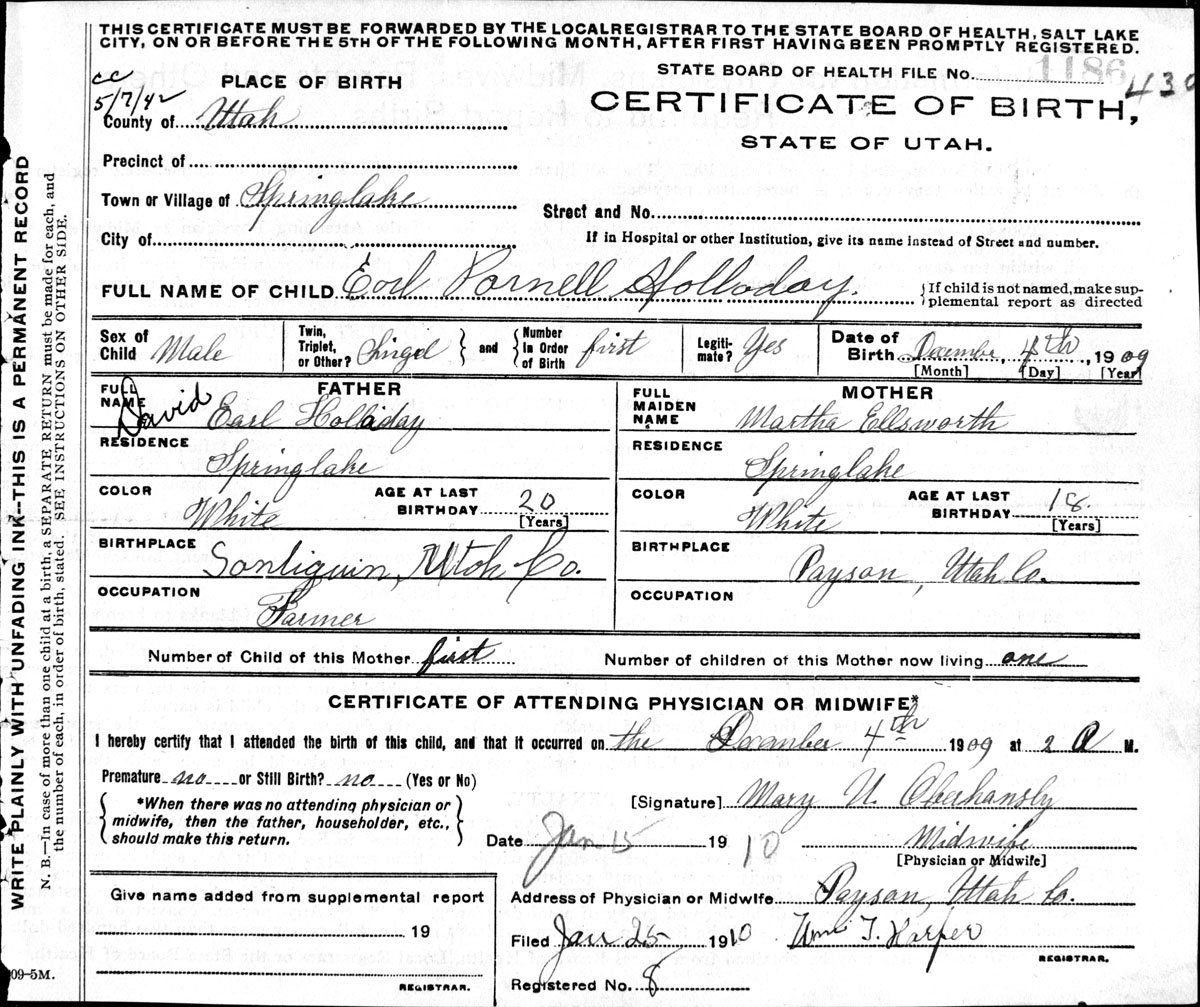 THIS CERTIFICATE MUST BE FORWARDED BY THE LOCAL REGISTRAR TO THE STATE BOARD OF HEALTH, SALT LAKE
CITY, ON OR BEFORE THE 5TH OF THE FOLLOWING MONTH, AFTER FIRST HAVING BEEN PROMPTLY REGISTERED.
STATE BOARD OF HEALTH FILE No. 1186 430
cc
5/7/42
PLACE OF BIRTH
CERTIFICATE OF BIRTH,
STATE OF UTAH.
County of Utah
Precinct of
Town or Village of Springlake
Street and No.
City of
If in Hospital or other Institution, give its name instead of Street and number.
FULL NAME OF CHILD Earl Parnell Holladay. { If child is not named, make sup-
plemental report as directed
Sex of Child Male
Twin, Triplet, or Other? Singel } and { Number In Order of Birth first
Legiti-mate? Yes
Date of Birth December, 4th, 1909
[Month] [Day] [Year]
FATHER
FULL NAME David Earl Holladay
RESIDENCE Springlake
COLOR White AGE AT LAST BIRTHDAY 20 [Years]
BIRTHPLACE Santiquin, Utah Co.
OCCUPATION Farmer
MOTHER
FULL MAIDEN NAME Martha Ellsworth
RESIDENCE Springlake
COLOR White AGE AT LAST BIRTHDAY 18. [Years]
BIRTHPLACE Payson, Utah Co.
OCCUPATION
Number of Child of this Mother first Number of children of this Mother now living one
CERTIFICATE OF ATTENDING PHYSICIAN OR MIDWIFE*
I hereby certify that I attended the birth of this child, and that it occurred on the December 4th 1909 at 2 A M.
Premature no or Still Birth? no (Yes or No)
{ *When there was no attending physician or
midwife, then the father, householder, etc.,
should make this return. }
[Signature] Mary U. Oberhansly
Date Jan 15 1910 Midwife
[Physician or Midwife]
Give name added from supplemental report
19
REGISTRAR.
Address of Physician or Midwife Payson, Utah Co.
Filed Jan 25, 1910 Wm T. Harper
REGISTRAR.
Registered No. 8
09-5M.
WRITE PLAINLY WITH UNFADING INK--THIS IS A PERMANENT RECORD
N. B.—In case of more than one child at a birth, a SEPARATE RETURN must be made for each, and
the number of each, in order of birth, stated. SEE INSTRUCTIONS ON OTHER SIDE.